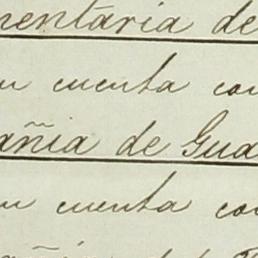 mentaria de
u cuenta con
añia de Gua
u cuenta con